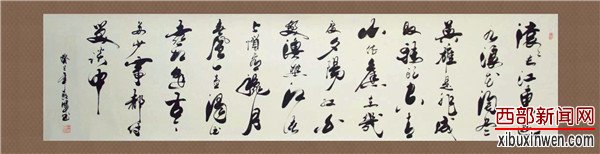 滚滚长江东逝
水浪花淘尽
英雄是非成
败转头空青
山依旧在几
度夕阳红白
发渔樵江渚
上惯看秋月
春风一壶浊酒
喜相逢古今
多少事都付
笑谈中
癸巳年
西部新闻网
xibuxinwen.com